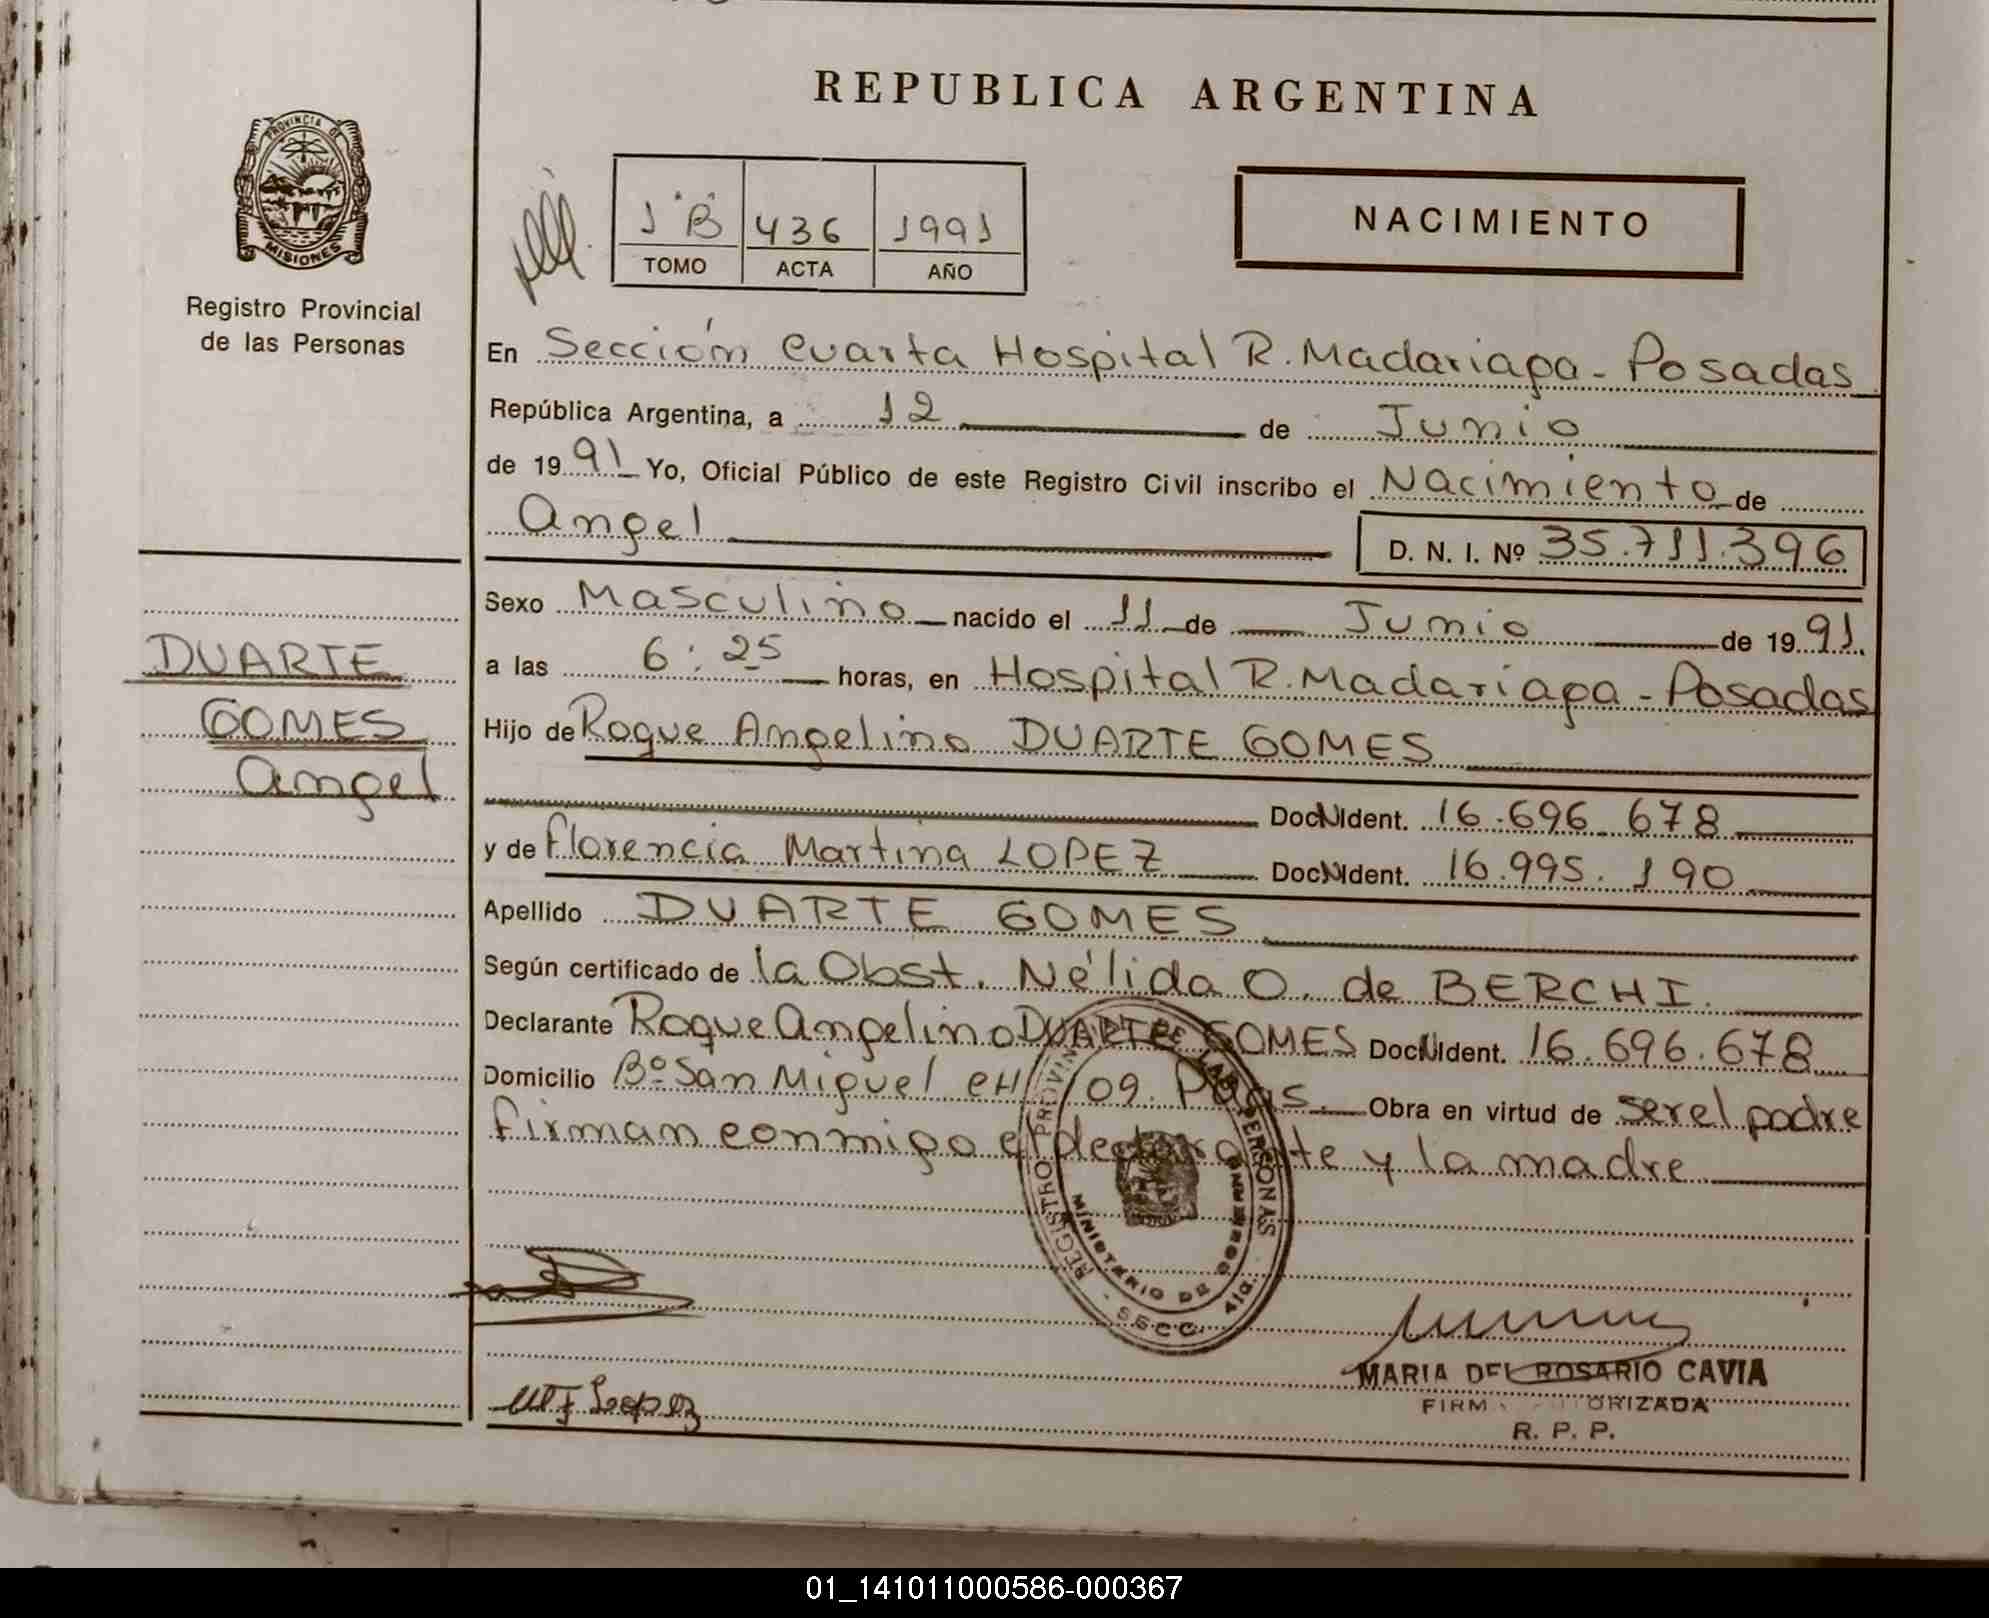 REPUBLICA ARGENTINA
PROVINCIA DE
MISIONES
Registro Provincial
de las Personas
1 "B" 436 1991
TOMO ACTA AÑO
NACIMIENTO
En Sección Cuarta Hospital R. Madariaga - Posadas
República Argentina, a 12 de Junio
de 1991 Yo, Oficial Público de este Registro Civil inscribo el Nacimiento de
Angel D. N. I. Nº 35.711.396
Sexo Masculino nacido el 11 de Junio de 1991.
a las 6:25 horas, en Hospital R. Madariaga - Posadas
Hijo de Roque Angelino DUARTE GOMES
Doc. Ident. 16.696.678
y de Florencia Martina LOPEZ Doc. Ident. 16.995.190
Apellido DUARTE GOMES
Según certificado de la Obst. Nélida O. de BERCHI.
Declarante Roque Angelino DUARTE GOMES Doc. Ident. 16.696.678
Domicilio Bº San Miguel CH 109. Pdas. Obra en virtud de ser el padre
firman conmigo el declarante y la madre
DUARTE
GOMES
Angel
REGISTRO PROVINCIAL DE LAS PERSONAS
MINISTERIO DE GOBIERNO
- SECC. 4ta. -
Lopez
MARIA DEL ROSARIO CAVIA
FIRMA AUTORIZADA
R. P. P.
01_141011000586-000367